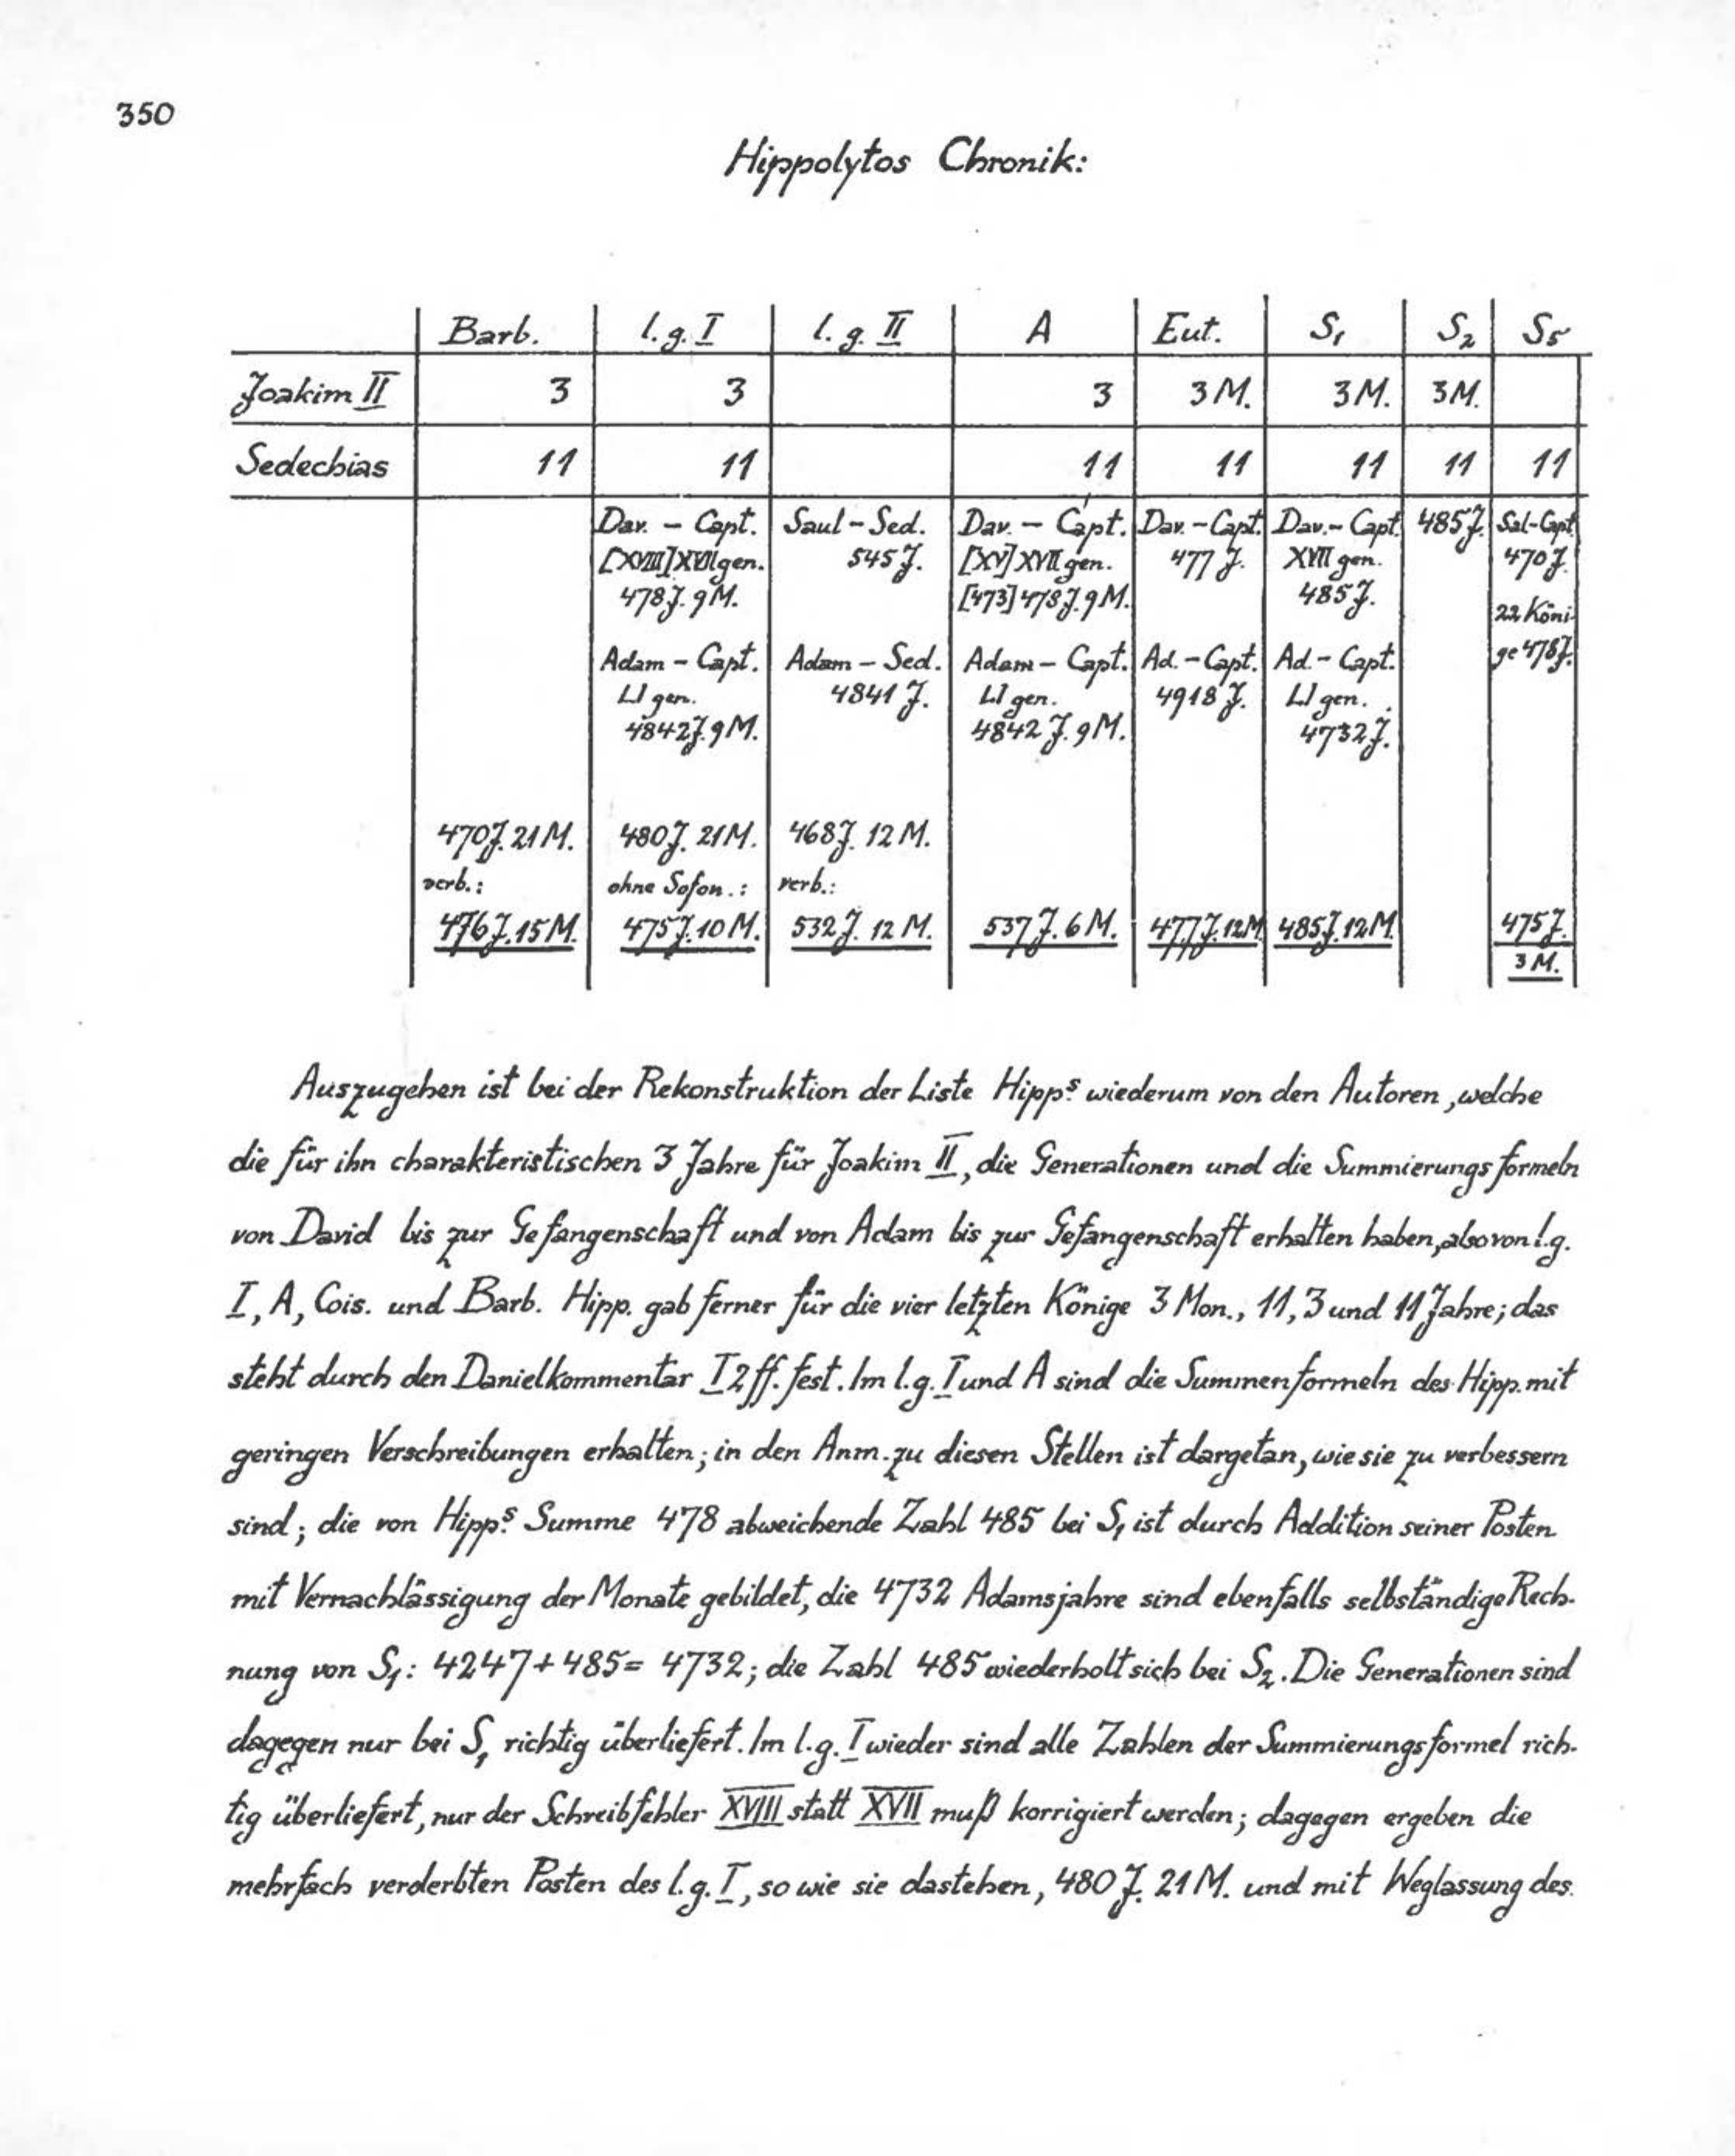 350
Hippolytos Chronik:
Barb. l.g. I l.g. II A Eut. S1 S2 S5
Joakim II 3 3 3 3 M. 3 M. 3 M.
Sedechias 11 11 11 11 11 11 11
Dav. – Capt. Saul – Sed. Dav. – Capt. Dav. – Capt. Dav. – Capt. 485 J. Sal-Capt.
[XVIII] XVII gen. 545 J. [XV] XVII gen. 477 J. XVII gen. 470 J.
478 J. 9 M. [473] 478 J. 9 M. 485 J. 22 Köni-
Adam – Capt. Adam – Sed. Adam – Capt. Ad. – Capt. Ad. – Capt. ge 478 J.
LI gen. 4841 J. LI gen. 4918 J. LI gen.
4842 J. 9 M. 4842 J. 9 M. 4732 J.
470 J. 21 M. 480 J. 21 M. 468 J. 12 M.
verb.: ohne Sofon.: verb.:
476 J. 15 M. 475 J. 10 M. 532 J. 12 M. 537 J. 6 M. 477 J. 12 M. 485 J. 12 M. 475 J.
3 M.
Auszugehen ist bei der Rekonstruktion der Liste Hipps wiederum von den Autoren, welche
die für ihn charakteristischen 3 Jahre für Joakim II, die Generationen und die Summierungsformeln
von David bis zur Gefangenschaft und von Adam bis zur Gefangenschaft erhalten haben, also von l.g.
I, A, Cois. und Barb. Hipp. gab ferner für die vier letzten Könige 3 Mon., 11, 3 und 11 Jahre; das
steht durch den Danielkommentar I 2 ff. fest. Im l.g. I und A sind die Summenformeln des Hipp. mit
geringen Verschreibungen erhalten; in den Anm. zu diesen Stellen ist dargetan, wie sie zu verbessern
sind; die von Hipps Summe 478 abweichende Zahl 485 bei S1 ist durch Addition seiner Posten
mit Vernachlässigung der Monate gebildet, die 4732 Adamsjahre sind ebenfalls selbständige Rech-
nung von S1: 4247 + 485 = 4732; die Zahl 485 wiederholt sich bei S2. Die Generationen sind
dagegen nur bei S1 richtig überliefert. Im l.g. I wieder sind alle Zahlen der Summierungsformel rich-
tig überliefert, nur der Schreibfehler XVIII statt XVII muß korrigiert werden; dagegen ergeben die
mehrfach verderbten Posten des l.g. I, so wie sie dastehen, 480 J. 21 M. und mit Weglassung des